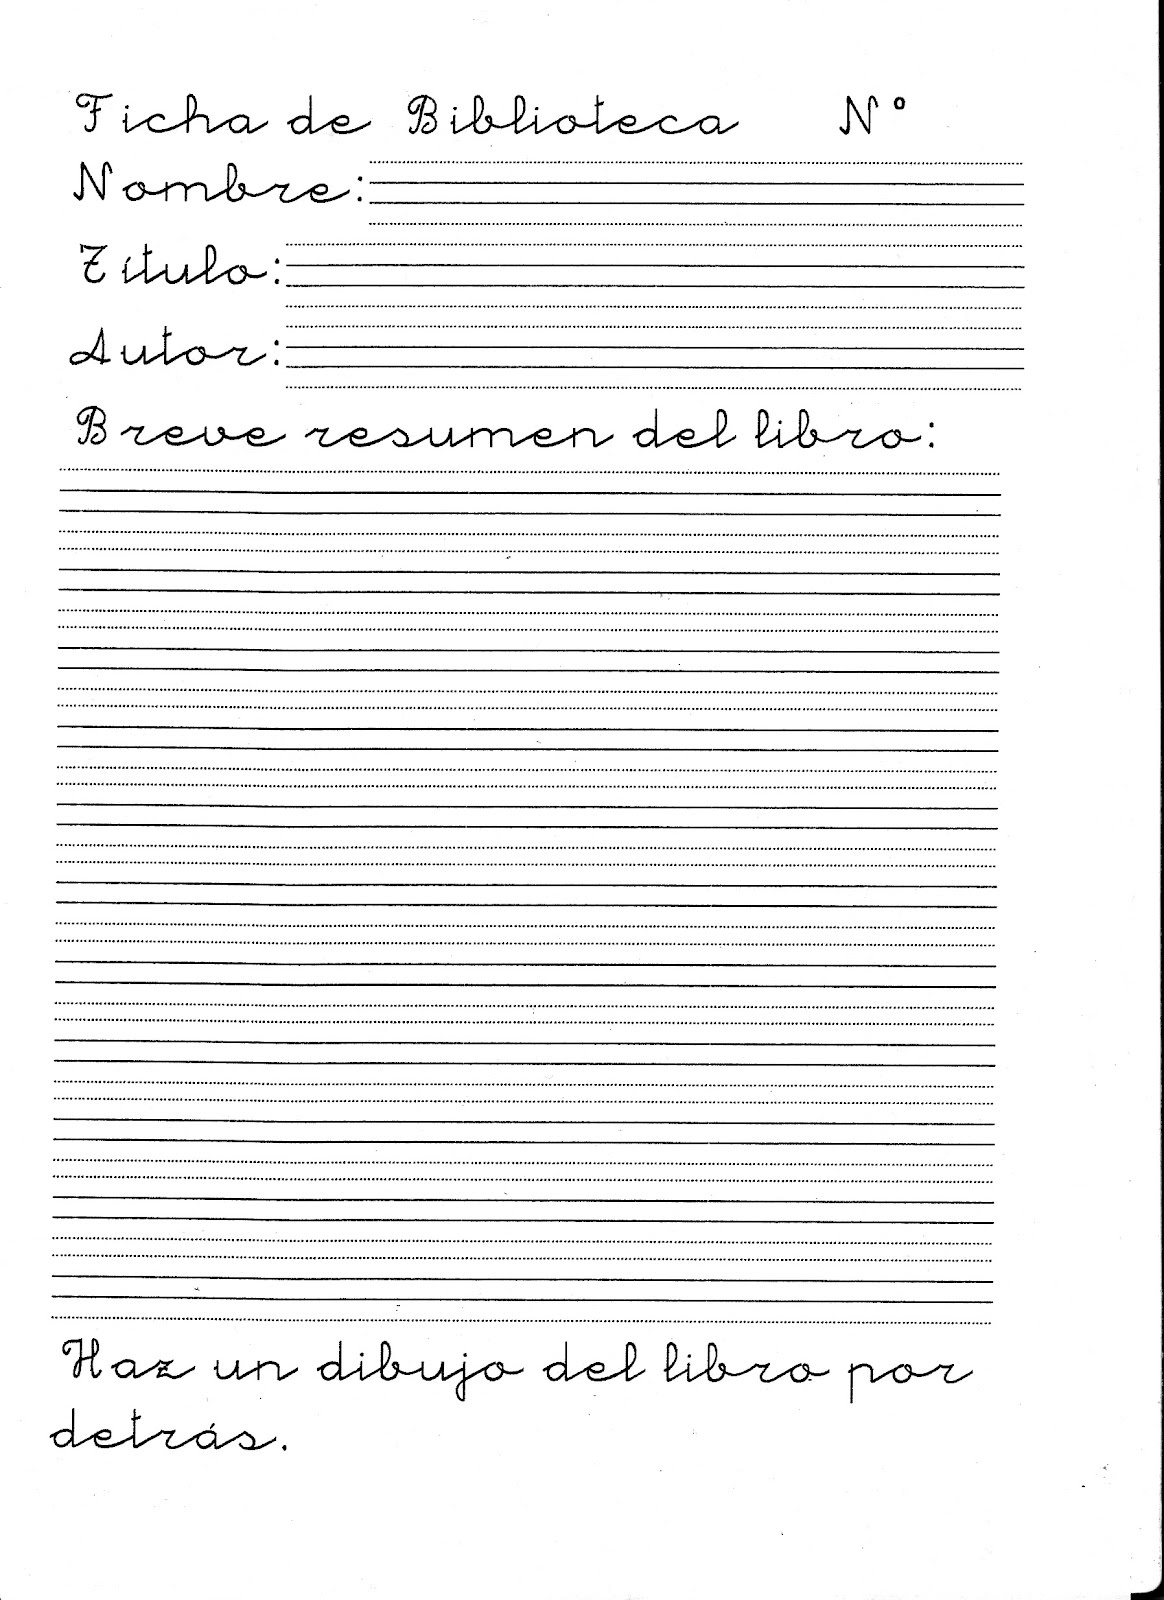 Ficha de Biblioteca N°
Nombre:
Título:
Autor:
Breve resumen del libro:
Haz un dibujo del libro por
detrás.